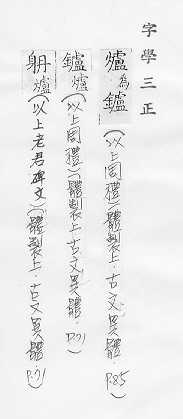 字學三正
爐為鑪(以上周禮)(體製上·古文異體·P.85
鑪爐(以上周禮)(體製上·古文異體·P.71)
爐(以上老君碑文)(體製上·古文異體P.71